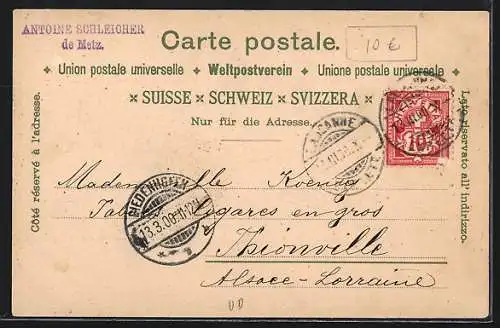 ANTOINE SCHLEICHER
de Metz.
Carte postale.
10 €
Union postale universelle ✦ Weltpostverein ✦ Unione postale universale
SUISSE × SCHWEIZ × SVIZZERA
Nur für die Adresse.
Côté réservé à l'adresse.
Lato riservato all'indirizzo.
LAUSANNE
10
DIEDENHOFEN
13.3.00.11-12V
Mademoiselle Koenig
Tabacs Cigares en gros
Thionville
Alsace-Lorraine